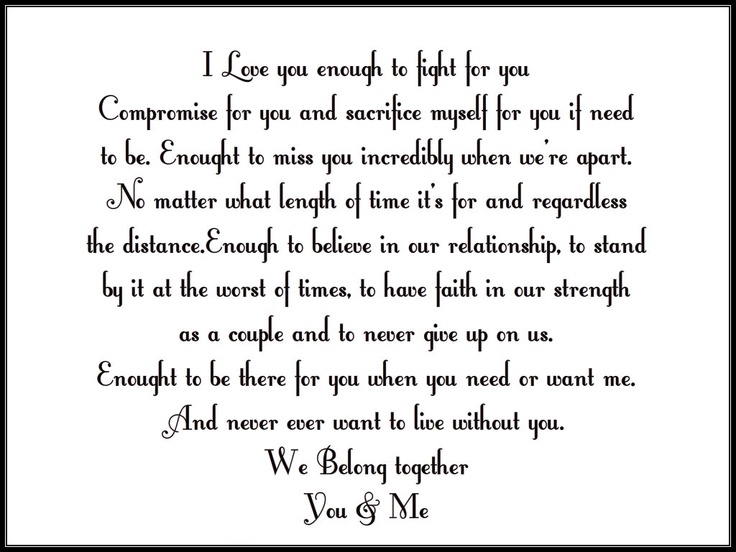 I Love you enough to fight for you
Compromise for you and sacrifice myself for you if need
to be. Enought to miss you incredibly when we're apart.
No matter what length of time it's for and regardless
the distance.Enough to believe in our relationship, to stand
by it at the worst of times, to have faith in our strength
as a couple and to never give up on us.
Enought to be there for you when you need or want me.
And never ever want to live without you.
We Belong together
You & Me